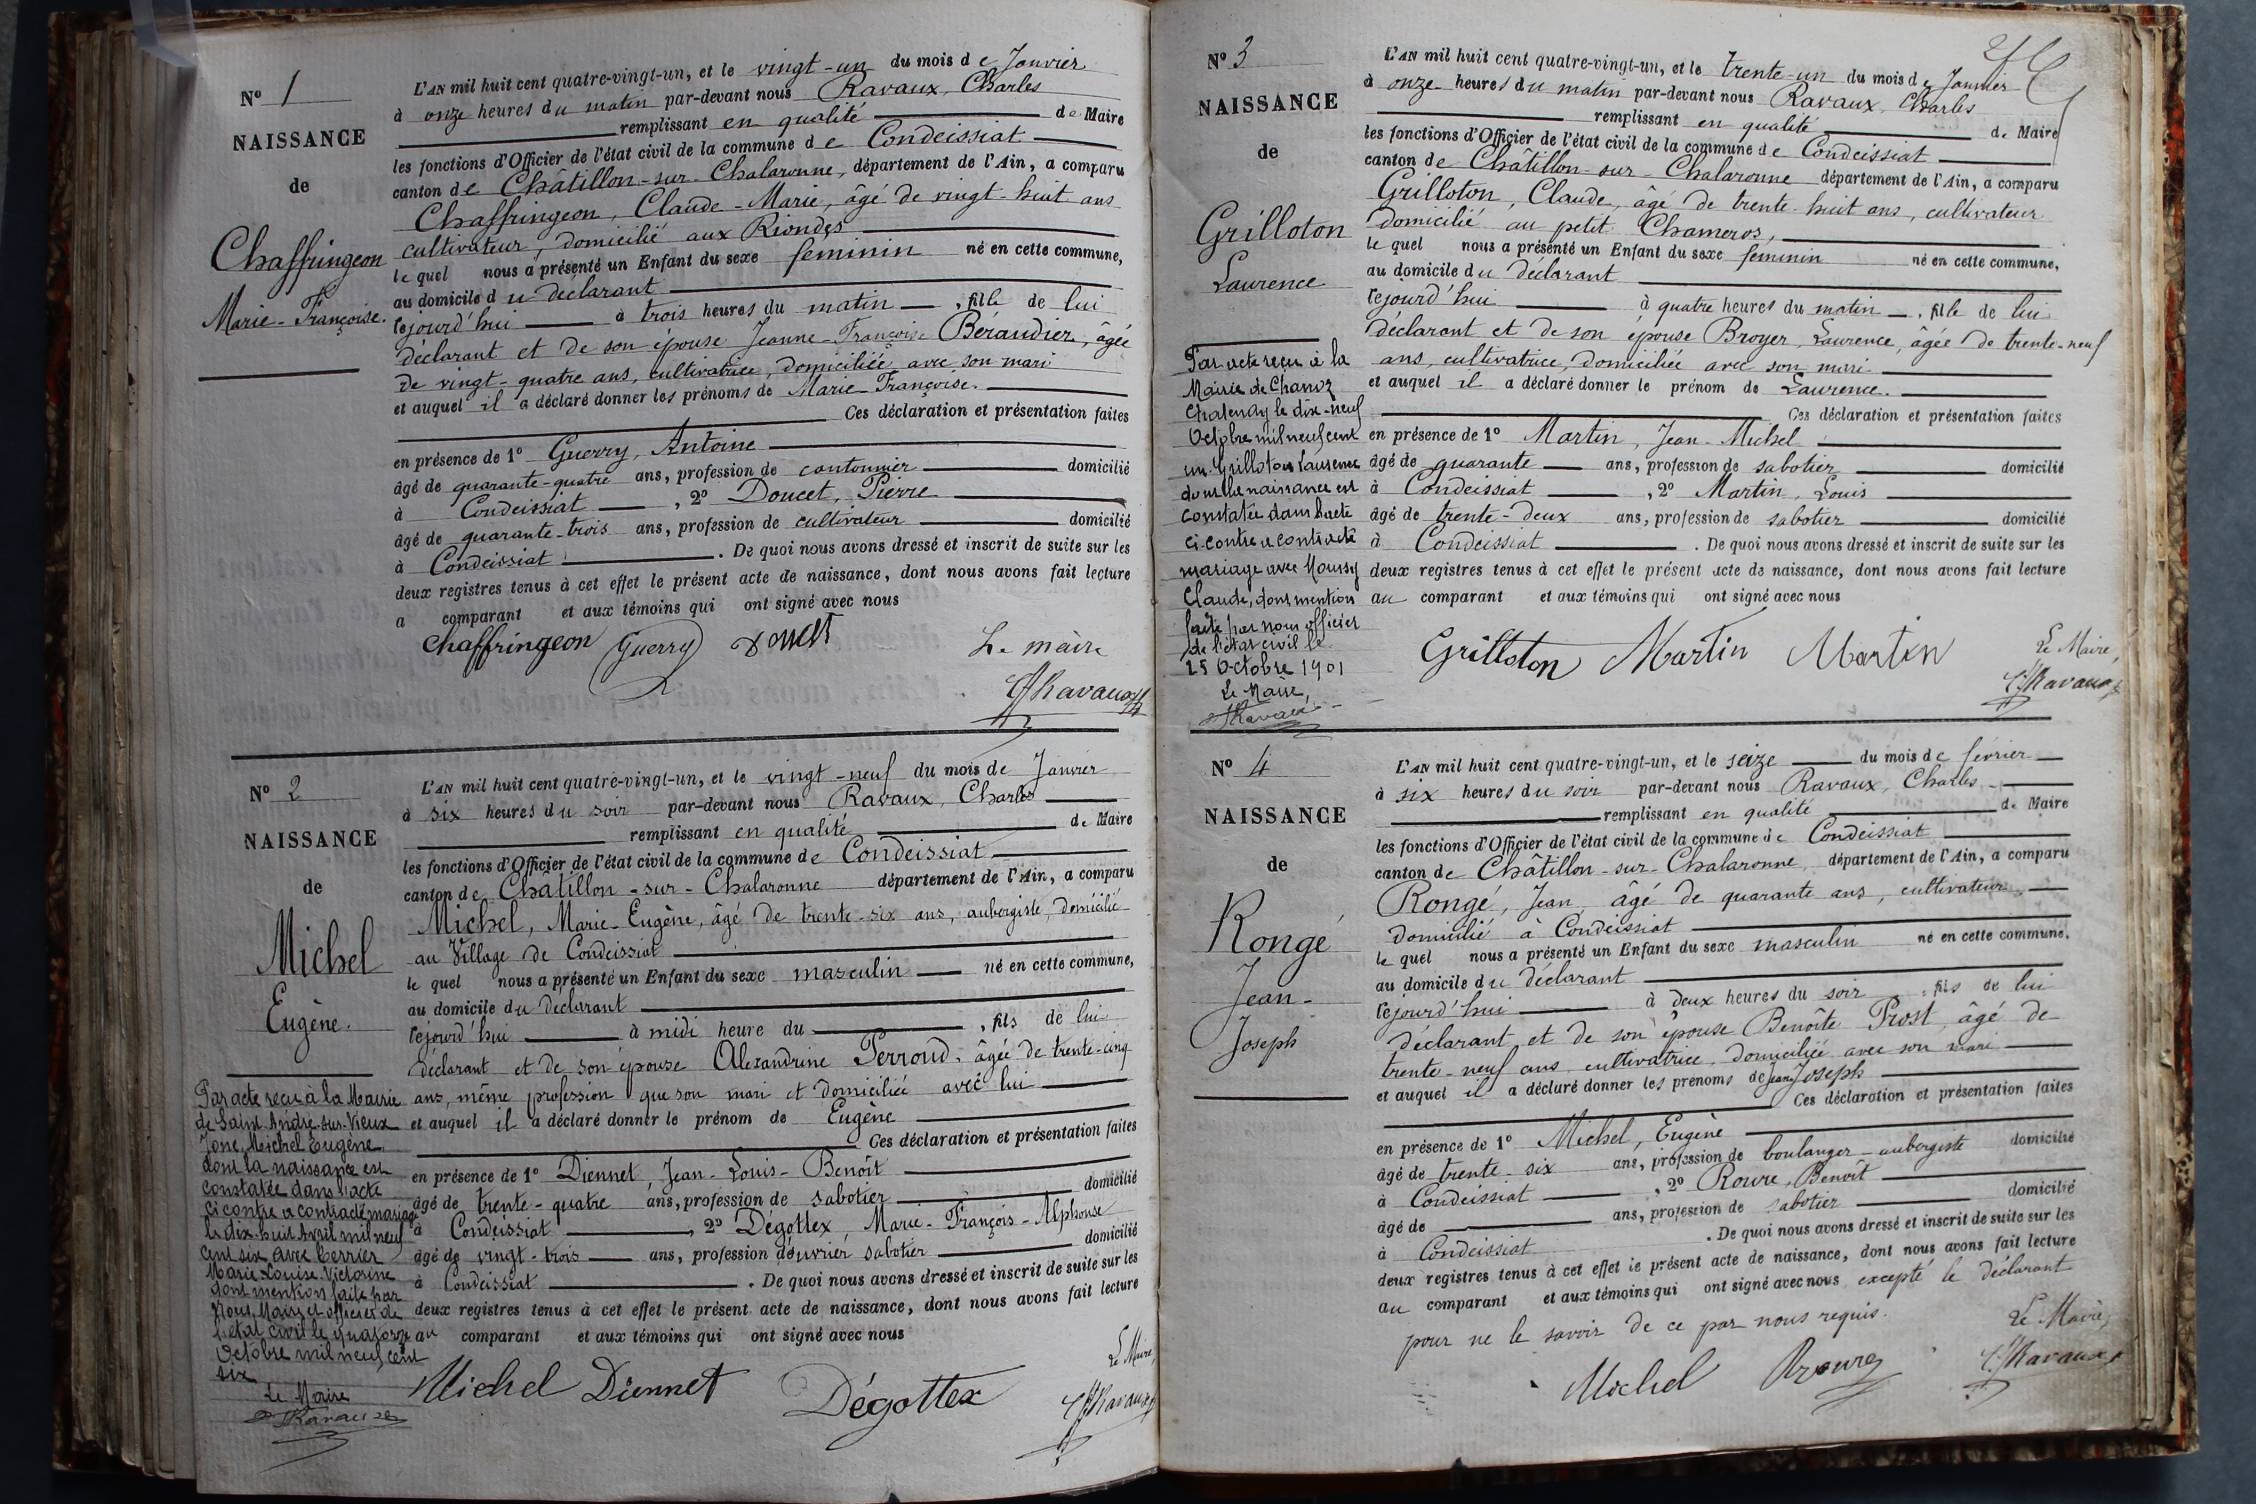 N° 1
NAISSANCE
de
Chaffringeon
Marie-Françoise.
L'AN mil huit cent quatre-vingt-un, et le vingt-un du mois de Janvier
à onze heures du matin par-devant nous Ravaux, Charles
remplissant en qualité de Maire
les fonctions d'Officier de l'état civil de la commune de Condeissiat
canton de Châtillon-sur-Chalaronne, département de l'Ain, a comparu
Chaffringeon, Claude-Marie, âgé de vingt-huit ans
cultivateur, domicilié aux Riondes
le quel nous a présenté un Enfant du sexe féminin né en cette commune,
au domicile du déclarant
cejourd'hui à trois heures du matin, fille de lui
déclarant et de son épouse Jeanne-Françoise Bérandier, âgée
de vingt-quatre ans, cultivatrice, domiciliée avec son mari
et auquel il a déclaré donner les prénoms de Marie-Françoise.
Ces déclaration et présentation faites
en présence de 1° Guerry, Antoine
âgé de quarante-quatre ans, profession de cantonnier domicilié
à Condeissiat, 2° Doucet, Pierre
âgé de quarante-trois ans, profession de cultivateur domicilié
à Condeissiat. De quoi nous avons dressé et inscrit de suite sur les
deux registres tenus à cet effet le présent acte de naissance, dont nous avons fait lecture
a comparant et aux témoins qui ont signé avec nous
Chaffringeon Guerry Doucet
Le maire
Ch Ravaux
N° 2
NAISSANCE
de
Michel
Eugène.
L'AN mil huit cent quatre-vingt-un, et le vingt-neuf du mois de Janvier
à six heures du soir par-devant nous Ravaux, Charles
remplissant en qualité de Maire
les fonctions d'Officier de l'état civil de la commune de Condeissiat
canton de Châtillon-sur-Chalaronne département de l'Ain, a comparu
Michel, Marie-Eugène, âgé de trente-six ans, aubergiste, domicilié
au Village de Condeissiat
le quel nous a présenté un Enfant du sexe masculin né en cette commune,
au domicile du déclarant
cejourd'hui à midi heure du, fils de lui
déclarant et de son épouse Alexandrine Perroud, âgée de trente-cinq
ans, même profession que son mari et domiciliée avec lui
et auquel il a déclaré donner le prénom de Eugène
Ces déclaration et présentation faites
en présence de 1° Diennet, Jean-Louis-Benoît
âgé de trente-quatre ans, profession de sabotier domicilié
à Condeissiat, 2° Dégottex Marie-François-Alphonse
âgé de vingt-trois ans, profession d'ouvrier sabotier domicilié
à Condeissiat. De quoi nous avons dressé et inscrit de suite sur les
deux registres tenus à cet effet le présent acte de naissance, dont nous avons fait lecture
au comparant et aux témoins qui ont signé avec nous
Michel Diennet Dégottex
Le Maire,
Ch Ravaux
Par acte reçu à la Mairie
de Saint André-sur-Vieux
Jonc, Michel Eugène
dont la naissance est
constatée dans l'acte
ci contre a contracté mariage
le dix-huit Avril mil neuf
cent six avec Cerrier
Marie Louise Victorine
dont mention faite par
Nous, Maire et officier de
l'état civil le quatorze
Octobre mil neuf cent
six
Le Maire
Ravaux
N° 3
NAISSANCE
de
Grilloton
Laurence
L'AN mil huit cent quatre-vingt-un, et le trente-un du mois de Janvier
à onze heures du matin par-devant nous Ravaux, Charles
remplissant en qualité de Maire
les fonctions d'Officier de l'état civil de la commune de Condeissiat
canton de Châtillon-sur-Chalaronne département de l'Ain, a comparu
Grilloton, Claude, âgé de trente-huit ans, cultivateur
domicilié au petit Chameros,
le quel nous a présenté un Enfant du sexe féminin né en cette commune,
au domicile du déclarant
cejourd'hui à quatre heures du matin, fille de lui
déclarant et de son épouse Broyer, Laurence, âgée de trente-neuf
ans, cultivatrice, domiciliée avec son mari
et auquel il a déclaré donner le prénom de Laurence.
Ces déclaration et présentation faites
en présence de 1° Martin, Jean-Michel
âgé de quarante ans, profession de sabotier domicilié
à Condeissiat, 2° Martin, Louis
âgé de trente-deux ans, profession de sabotier domicilié
à Condeissiat. De quoi nous avons dressé et inscrit de suite sur les
deux registres tenus à cet effet le présent acte de naissance, dont nous avons fait lecture
au comparant et aux témoins qui ont signé avec nous
Grilloton Martin Martin
Le Maire,
Ch Ravaux
Par acte reçu à la
Mairie de Chanoz
Chatenay le dix-neuf
Octobre mil neuf cent
un Grilloton Laurence
dont la naissance est
constatée dans l'acte
ci-contre a contracté
mariage avec Moussy
Claude, dont mention
faite par nous officier
de l'état civil le
25 Octobre 1901
Le Maire,
Ravaux
N° 4
NAISSANCE
de
Rongé
Jean-
Joseph
L'AN mil huit cent quatre-vingt-un, et le seize du mois de février
à six heures du soir par-devant nous Ravaux, Charles
remplissant en qualité de Maire
les fonctions d'Officier de l'état civil de la commune de Condeissiat
canton de Châtillon-sur-Chalaronne, département de l'Ain, a comparu
Rongé, Jean, âgé de quarante ans, cultivateur
domicilié à Condeissiat
le quel nous a présenté un Enfant du sexe masculin né en cette commune,
au domicile du déclarant
cejourd'hui à deux heures du soir, fils de lui
déclarant et de son épouse Benoîte Prost, âgé de
trente-neuf ans cultivatrice, domiciliée avec son mari
et auquel il a déclaré donner les prénoms de Jean Joseph
Ces déclaration et présentation faites
en présence de 1° Michel, Eugène
âgé de trente-six ans, profession de boulanger-aubergiste domicilié
à Condeissiat, 2° Roure, Benoît
âgé de ans, profession de sabotier domicilié
à Condeissiat. De quoi nous avons dressé et inscrit de suite sur les
deux registres tenus à cet effet le présent acte de naissance, dont nous avons fait lecture
au comparant et aux témoins qui ont signé avec nous excepté le déclarant
pour ne le savoir de ce par nous requis.
Michel Roure
Le Maire,
Ch Ravaux